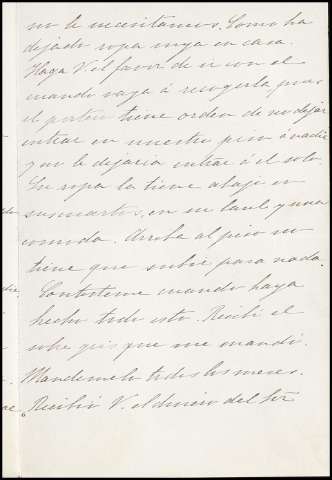 no le necesitamos. Como ha
dejado ropa suya en casa.
Haga V. el favor de ir con el
cuando vaya á recogerla pues
el portero tiene orden de no dejar
entrar en nuestro piso á nadie
y no le dejaria entrar á el solo.
Su ropa la tiene abajo en
su cuarto, en su baul y una
comoda. Arriba al piso no
tiene que subir para nada.
Contésteme cuando haya
hecho todo esto. Recibi el
que me mandó.
Mandemelo todos los meses.
Recibió V. el dinero del Sr.